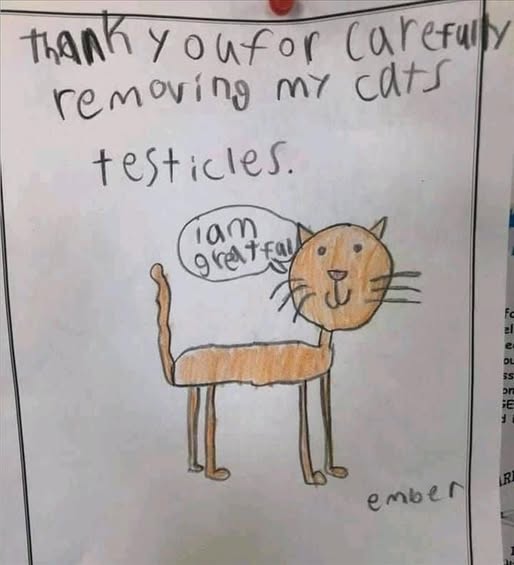 thank you for carefully
removing my cats
testicles.
i am
greatful
ember